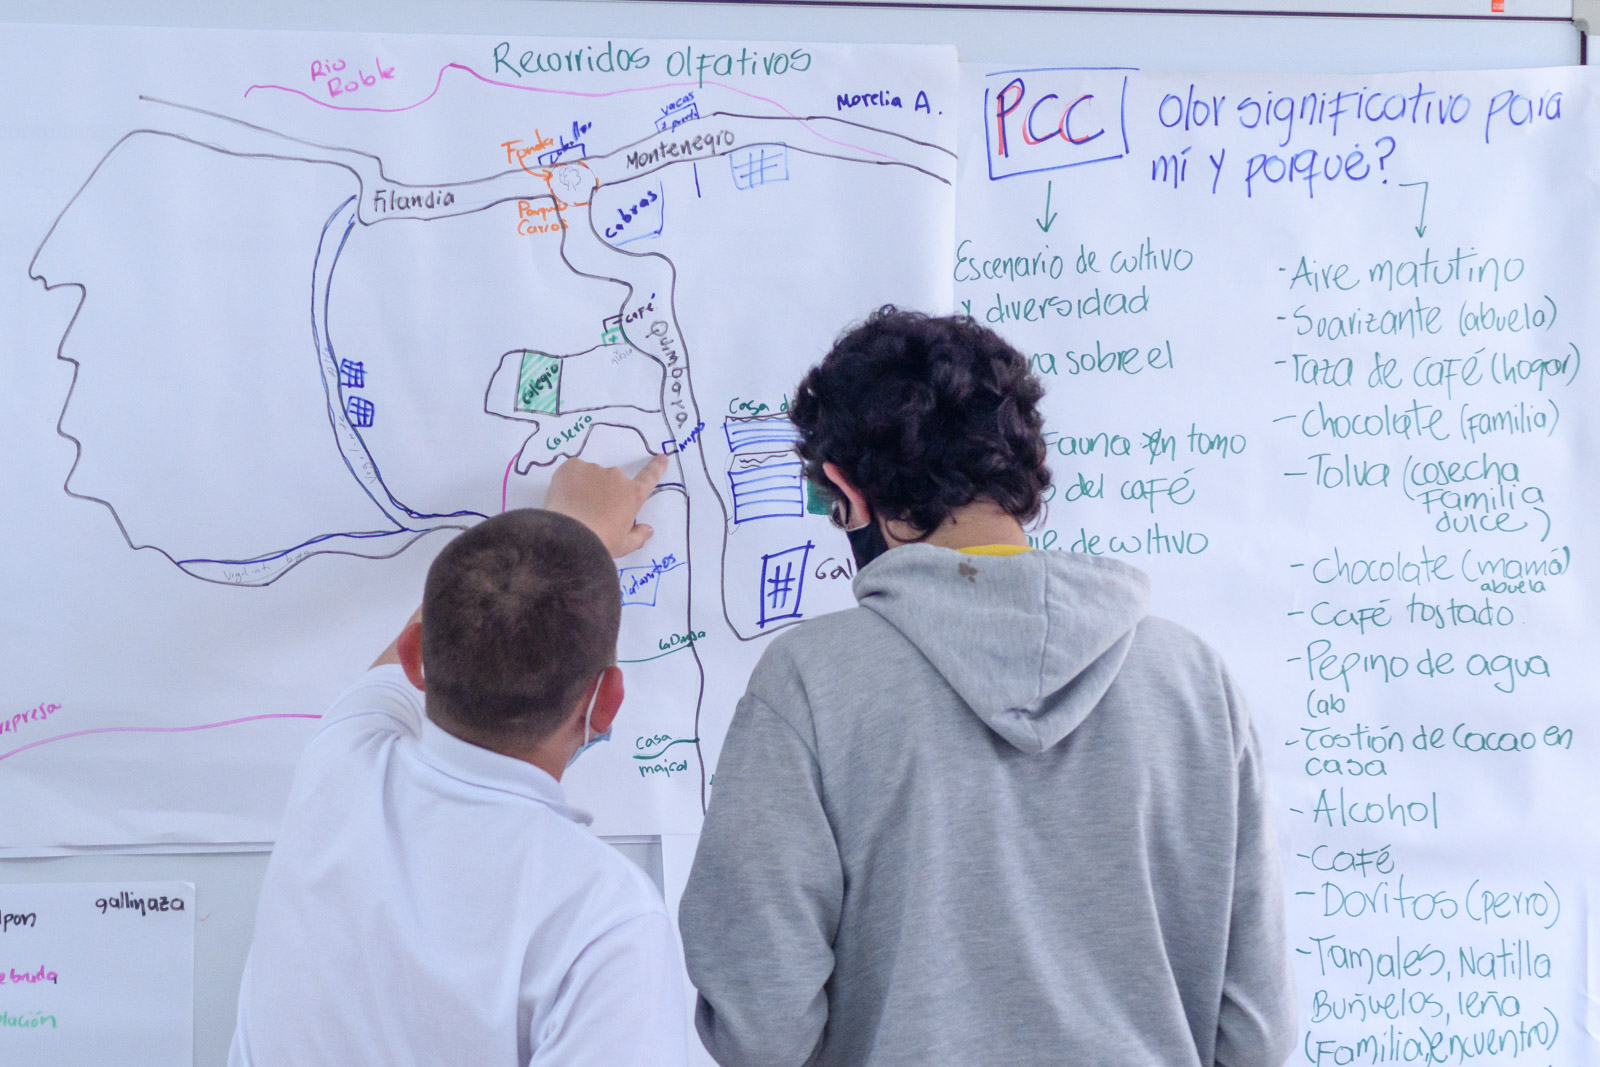 Recorridos olfativos
Rio
Roble
vacas
Morelia A.
Montenegro
Fonda
Filandia
Parque
Carros
cabras
café
Quimbaya
colegio
Caserio
Arepas
Casa de
Platanitos
Gal
represa
casa
gallinaza
PCC
olor significativo para
mí y porqué?
Escenario de cultivo
y diversidad
sobre el
Fauna en torno
del café
de cultivo
- Aire matutino
- Suavizante (abuela)
- Taza de café (hogar)
- Chocolate (familia)
- Tolva (cosecha
familia
dulce)
- Chocolate (mamá)
abuela
- Café tostado
- Pepino de agua
(ab
- Tostión de cacao en
casa
- Alcohol
- Café
- Doritos (perro)
- Tamales, Natilla
Buñuelos, leña
(Familia, encuentro)